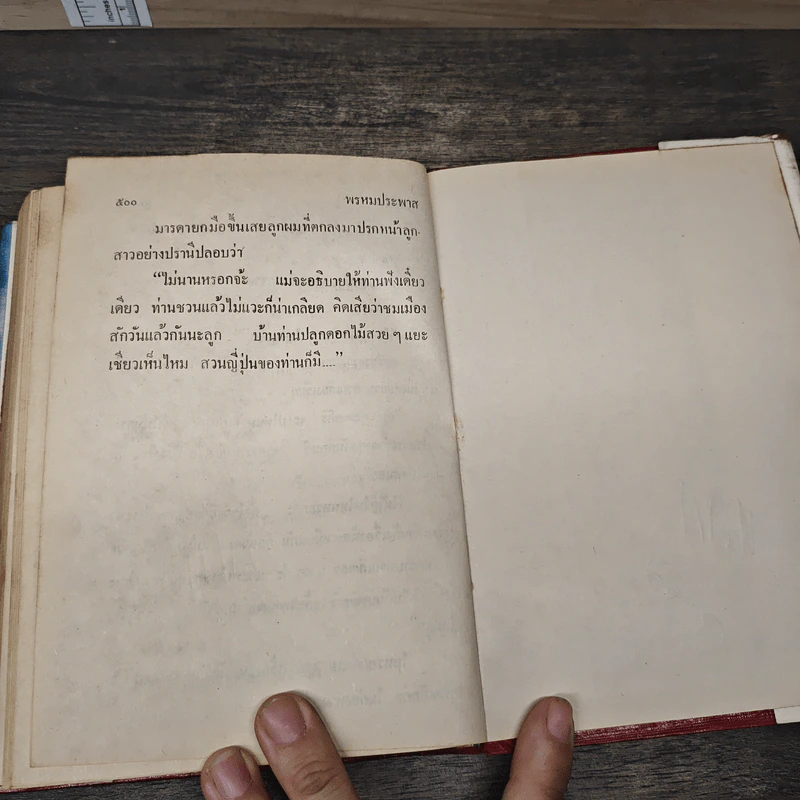 inches
๕๐๐ พรหมประพาส
มารดายกมือขึ้นเสยลูกผมที่ตกลงมาปรกหน้าลูก
สาวอย่างปรานีปลอบว่า
“ไม่นานหรอกจ้ะ แม่จะอธิบายให้ท่านฟังเดี๋ยว
เดียว ท่านชวนแล้วไม่แวะก็น่าเกลียด คิดเสียว่าชมเมือง
สักวันแล้วกันนะลูก บ้านท่านปลูกดอกไม้สวย ๆ แยะ
เชียวเห็นไหม สวนญี่ปุ่นของท่านก็มี....”